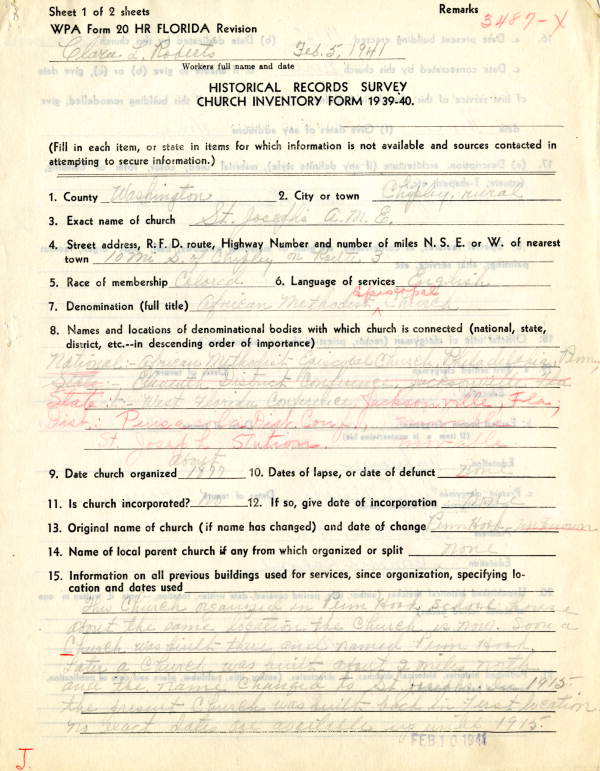 Sheet 1 of 2 sheets Remarks
WPA Form 20 HR FLORIDA Revision 3487-X
Clara L. Roberts Feb. 5, 1941
Workers full name and date
HISTORICAL RECORDS SURVEY
CHURCH INVENTORY FORM 1939-40.
(Fill in each item, or state in items for which information is not available and sources contacted in
attempting to secure information.)
1. County Washington 2. City or town Chipley, rural
3. Exact name of church St. Joseph's A.M.E.
4. Street address, R. F. D. route, Highway Number and number of miles N. S. E. or W. of nearest
town 10 Mi S. of Chipley on Route 3
5. Race of membership Colored 6. Language of services English
7. Denomination (full title) African Methodist Episcopal Church
8. Names and locations of denominational bodies with which church is connected (national, state,
district, etc.--in descending order of importance)
National:- African Methodist Episcopal Church, Philadelphia, Penn,
State:- Eleventh District Conference, Jacksonville Fla
State:- West Florida Conference, Jacksonville, Fla;
Dist: Pensacola Dist. Con.,
St. Joseph Station.
9. Date church organized about 1877 10. Dates of lapse, or date of defunct none
11. Is church incorporated? No 12. If so, give date of incorporation None
13. Original name of church (if name has changed) and date of change Penn Hook, unknown
14. Name of local parent church if any from which organized or split None
15. Information on all previous buildings used for services, since organization, specifying lo-
cation and dates used
This Church organized in Penn Hook, School house
about the same location the Church is now. Soon a
Church was built there and named Penn Hook.
Later a Church was built about 2 miles north
and the name changed to St. In 1915
the present Church was built back in first location
No exact dates are available until 1915.
FEB 10 1941
J.